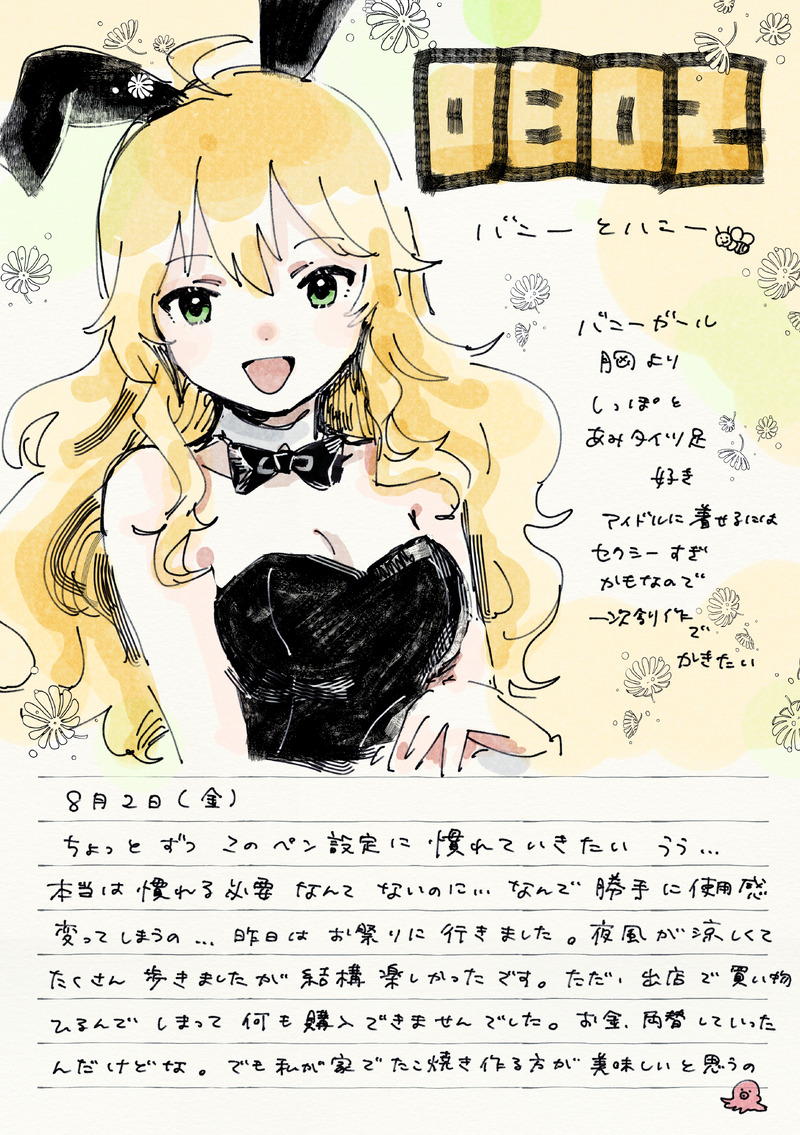 0802
バニーとハニー
バニーガール
胸より
しっぽと
あみタイツ足
好き
アイドルに着せるには
セクシーすぎ
かもなので
一次創作
で
かきたい
8月2日(金)
ちょっとずつ このペン設定に慣れていきたい うう…
本当は慣れる必要なんてないのに… なんで勝手に使用感
変ってしまうの… 昨日はお祭りに行きました。夜風が涼しくて
たくさん歩きましたが結構楽しかったです。ただ、出店で買い物
ひるんでしまって何も購入できませんでした。お金、両替していった
んだけどな。でも私が家でたこ焼き作る方が美味しいと思うの